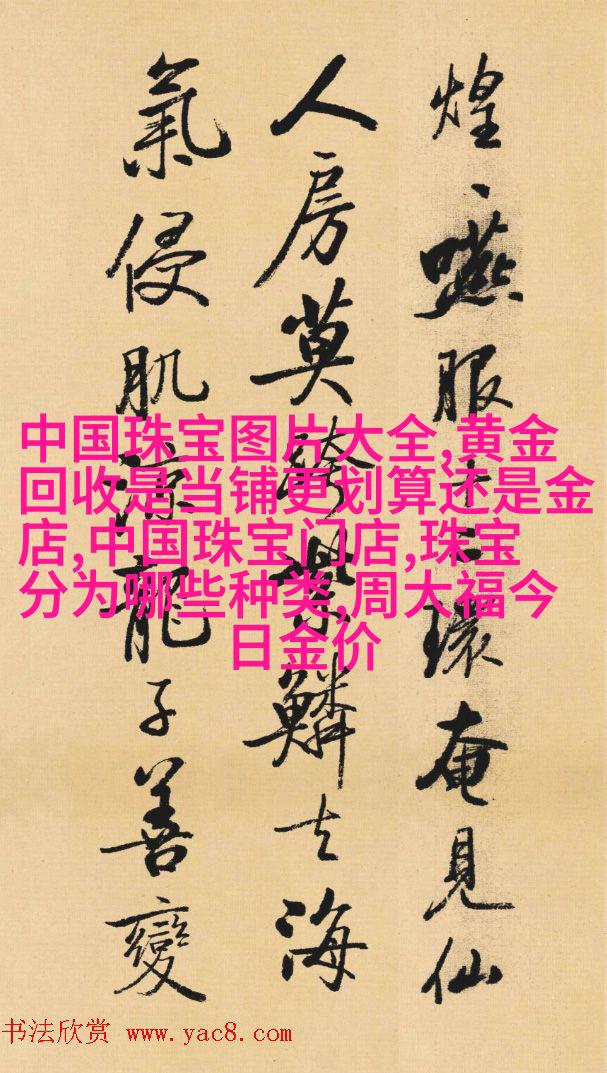 煌、嚥服十二環奄見仙
人房莫跨紫鱗去海
氣侵肌涼龍子善變
中国珠宝图片大全,黄金
回收是当铺更划算还是金
店,中国珠宝门店,珠宝
分为哪些种类,周大福今
日金价
书法欣赏 www.yac8.com